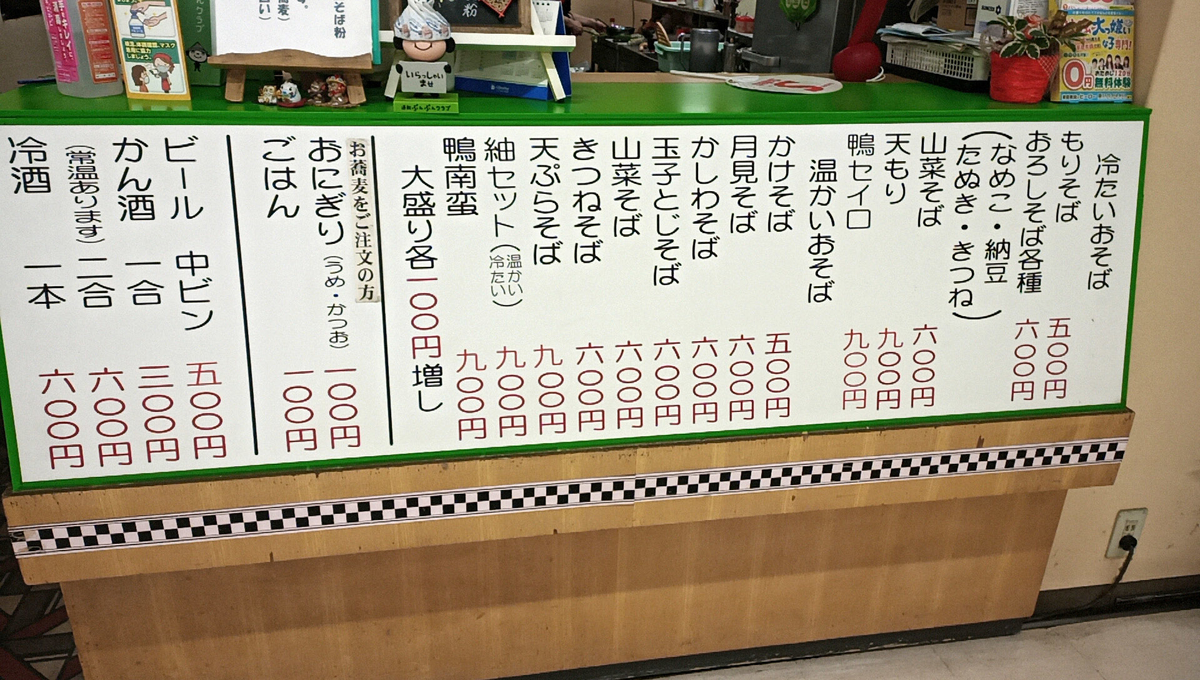 いらっしゃい
ませ
そば粉
粉
大っ嫌い
なら専門!
0円
無料体験
冷たいおそば
もりそば 五〇〇円
おろしそば各種 六〇〇円
(なめこ・納豆
たぬき・きつね)
山菜そば 六〇〇円
天もり 九〇〇円
鴨セイロ 九〇〇円
温かいおそば
かけそば 五〇〇円
月見そば 六〇〇円
かしわそば 六〇〇円
玉子とじそば 六〇〇円
山菜そば 六〇〇円
きつねそば 六〇〇円
天ぷらそば 九〇〇円
紬セット(温かい 冷たい) 九〇〇円
鴨南蛮 九〇〇円
大盛り各一〇〇円増し
お蕎麦をご注文の方
おにぎり(うめ・かつお) 一〇〇円
ごはん 一〇〇円
ビール 中ビン 五〇〇円
かん酒 一合 三〇〇円
(常温あります) 二合 六〇〇円
冷酒 一本 六〇〇円